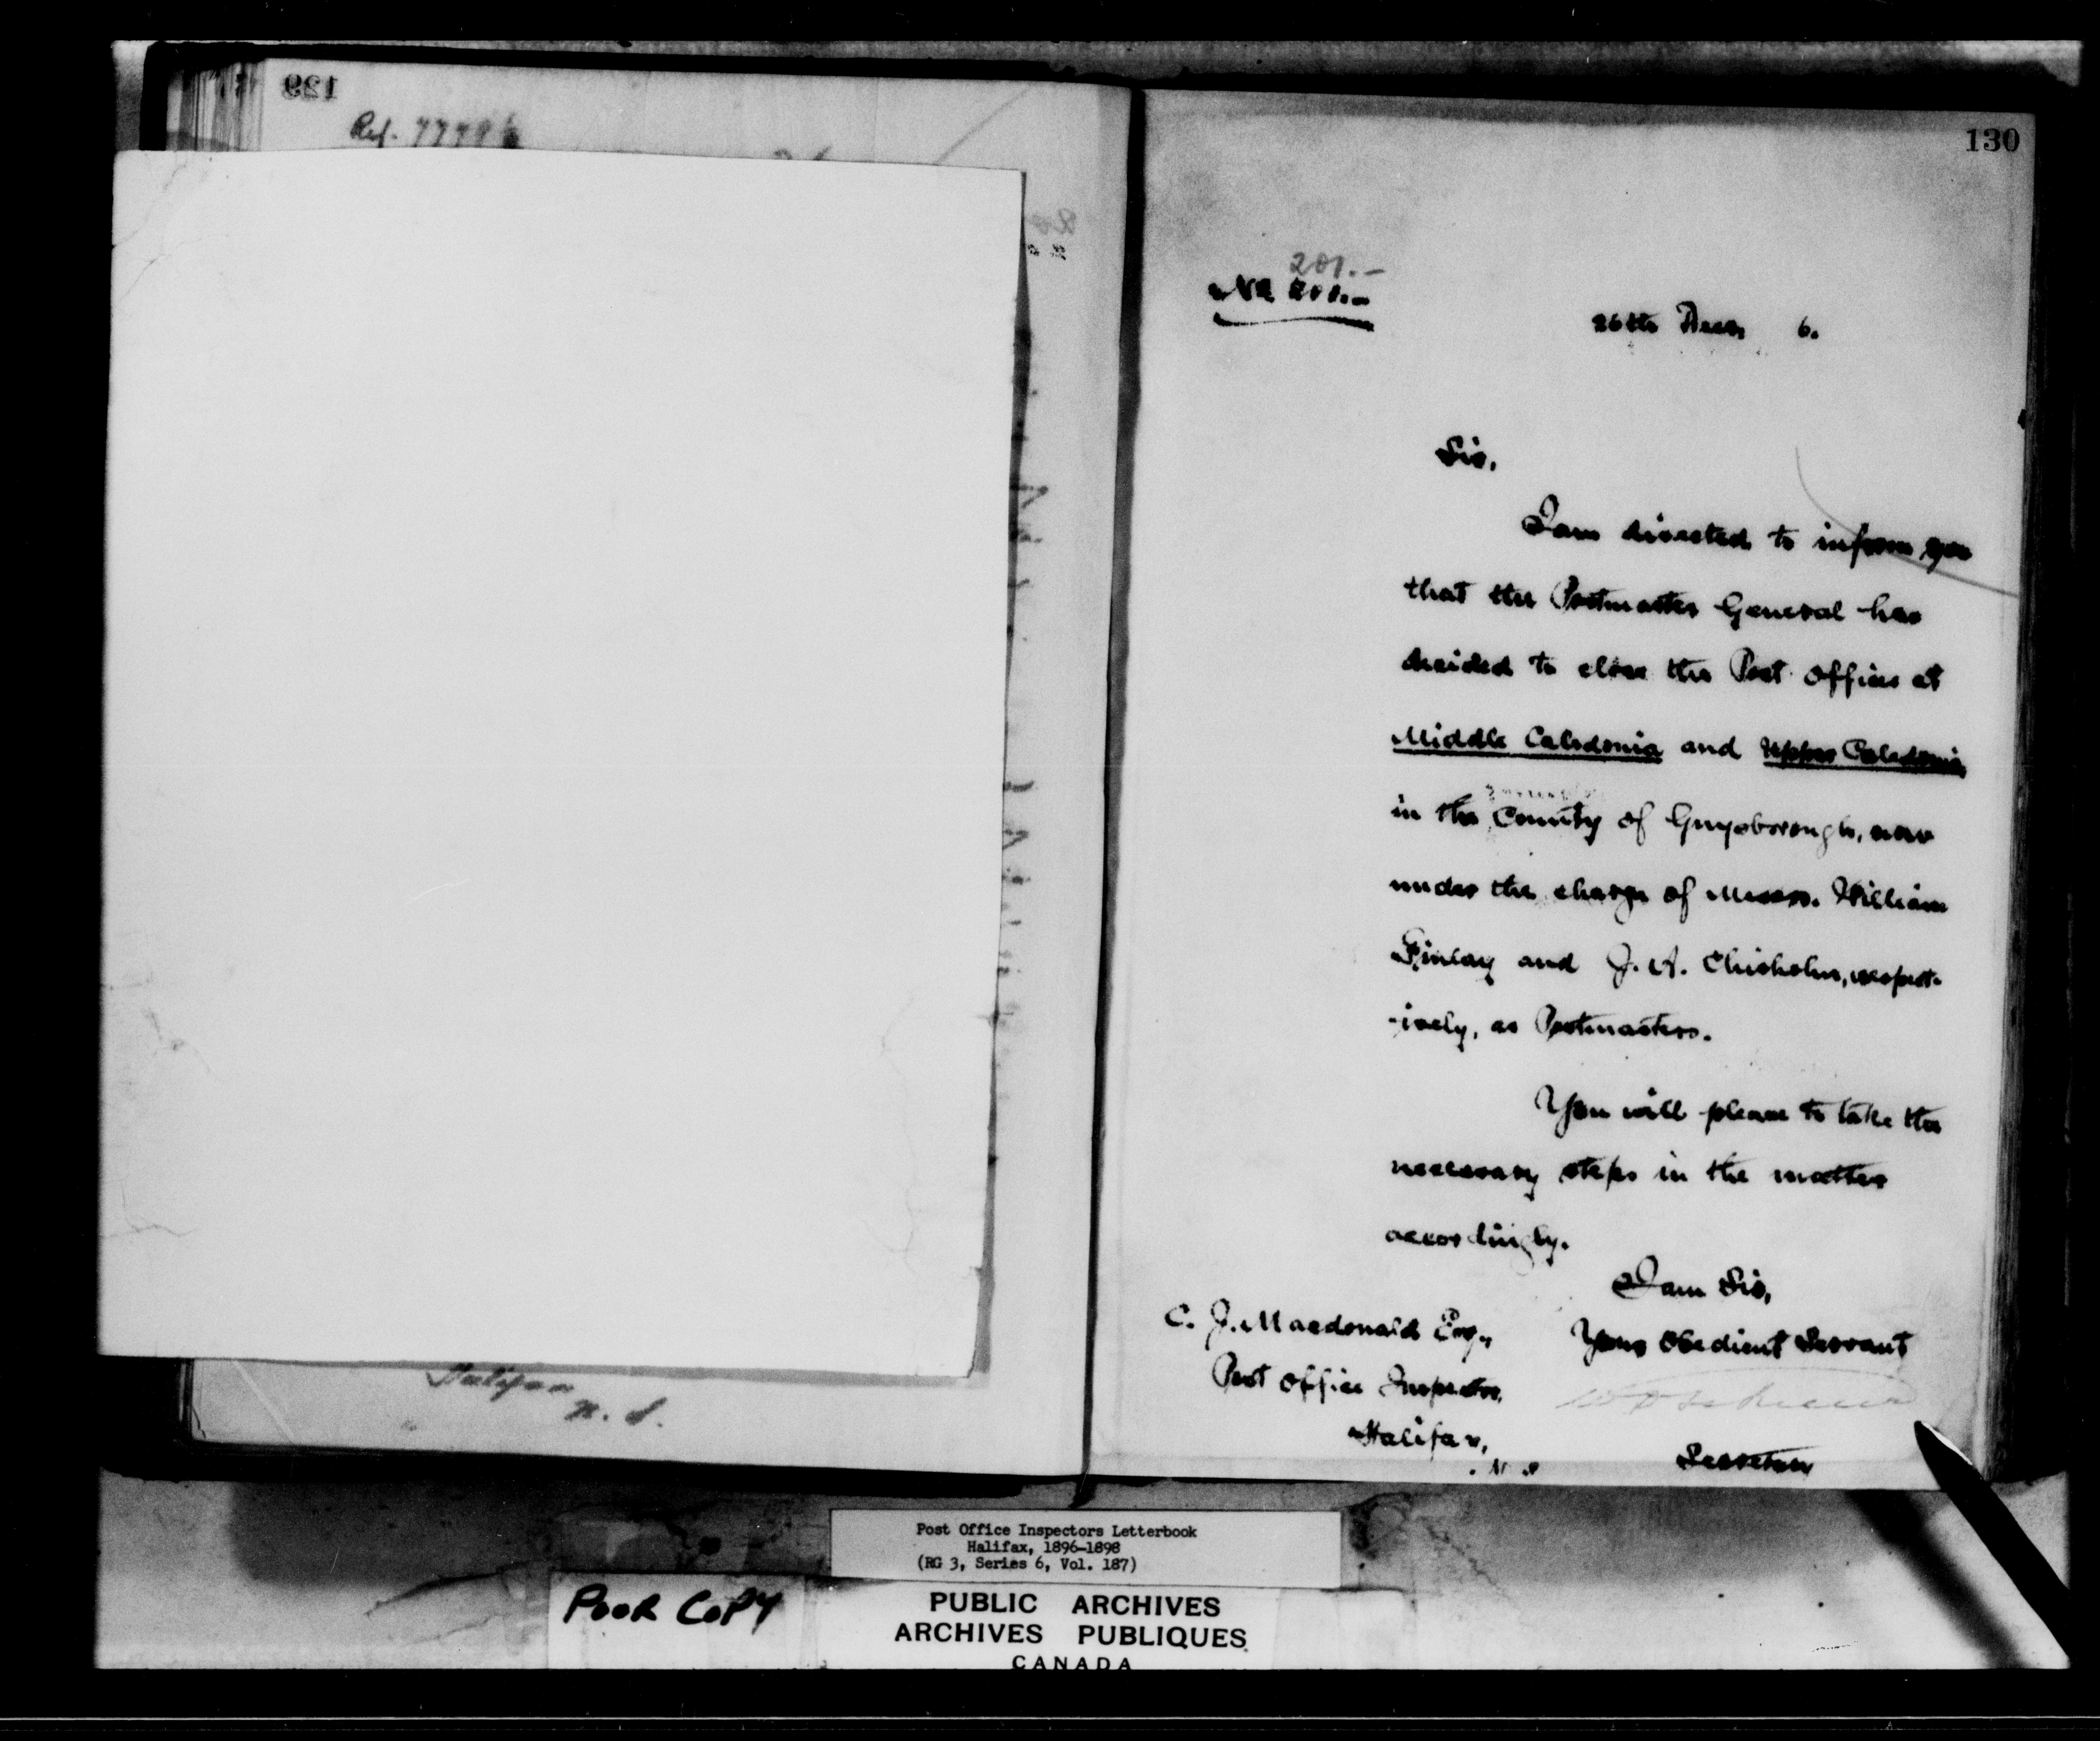 129
Ref. 7779
Halifax
N. S.
130
201.-
No. 200.-
26th Decr. 6.
Sir,
I am directed to inform you
that the Postmaster General has
decided to close the Post Offices at
Middle Caledonia and Upper Caledonia
in the County of Guysborough, now
under the charge of Messrs. William
Finlay and J. A. Chisholm, respect-
-ively, as Postmasters.
You will please to take the
necessary steps in the matter
accordingly.
I am Sir,
Your Obedient Servant
Secretary
C. J. Macdonald Esq.,
Post Office Inspector,
Halifax,
N.S.
Post Office Inspectors Letterbook
Halifax, 1896-1898
(RG 3, Series 6, Vol. 187)
POOR COPY
PUBLIC ARCHIVES
ARCHIVES PUBLIQUES
CANADA